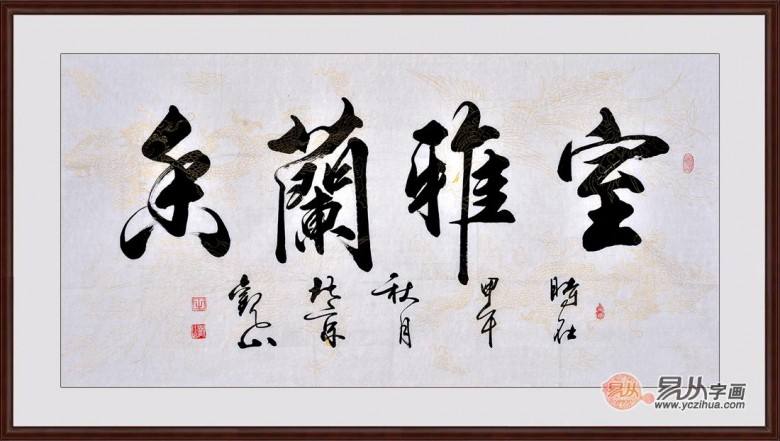 室雅蘭香
時在甲午秋月於京觀山
易从
易从字画
www.yczihua.com